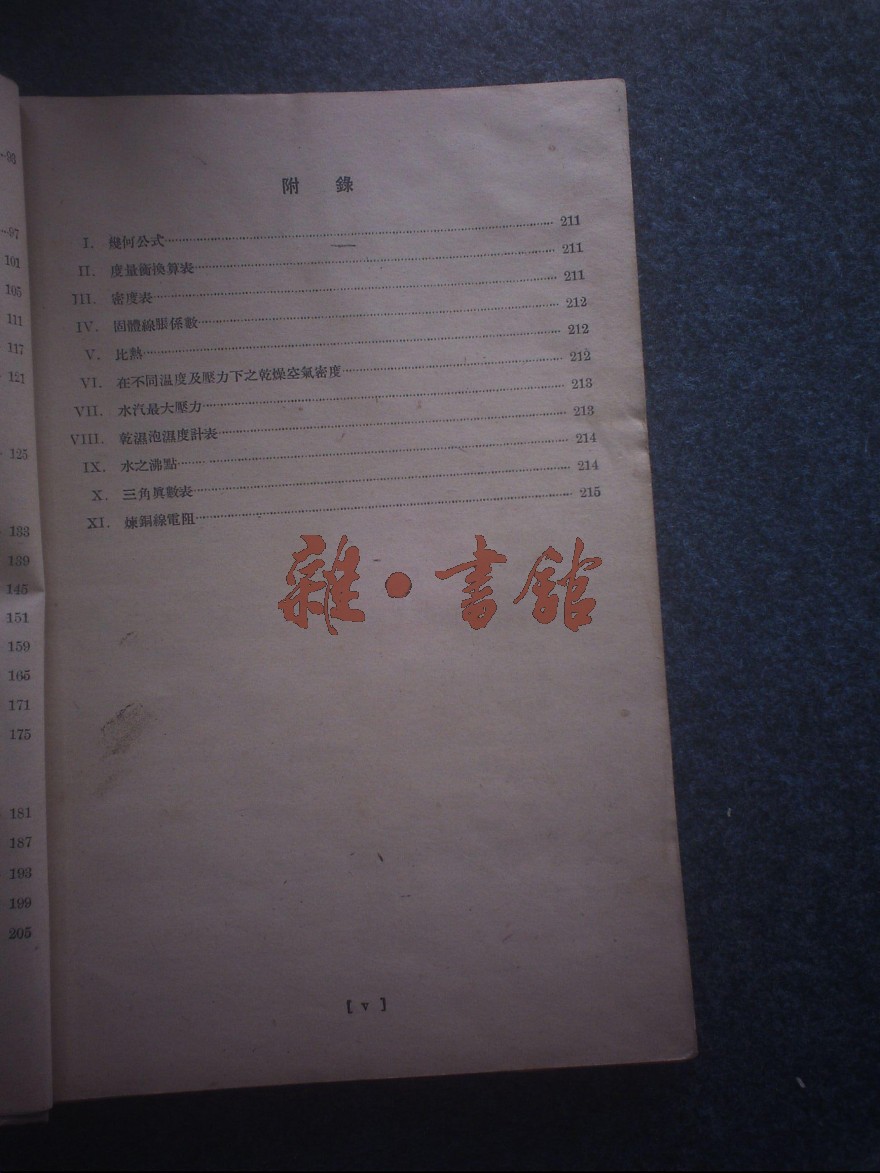 —93
—97
101
105
111
117
121
125
133
139
145
151
159
165
171
175
181
187
193
199
205
附 錄
I. 幾何公式 211
II. 度量衡換算表 211
III. 密度表 211
IV. 固體線脹係數 212
V. 比熱 212
VI. 在不同溫度及壓力下之乾燥空氣密度 212
VII. 水汽最大壓力 213
VIII. 乾濕泡溫度計表 213
IX. 水之沸點 214
X. 三角眞數表 214
XI. 煉銅線電阻 215
雜·書館
[ v ]